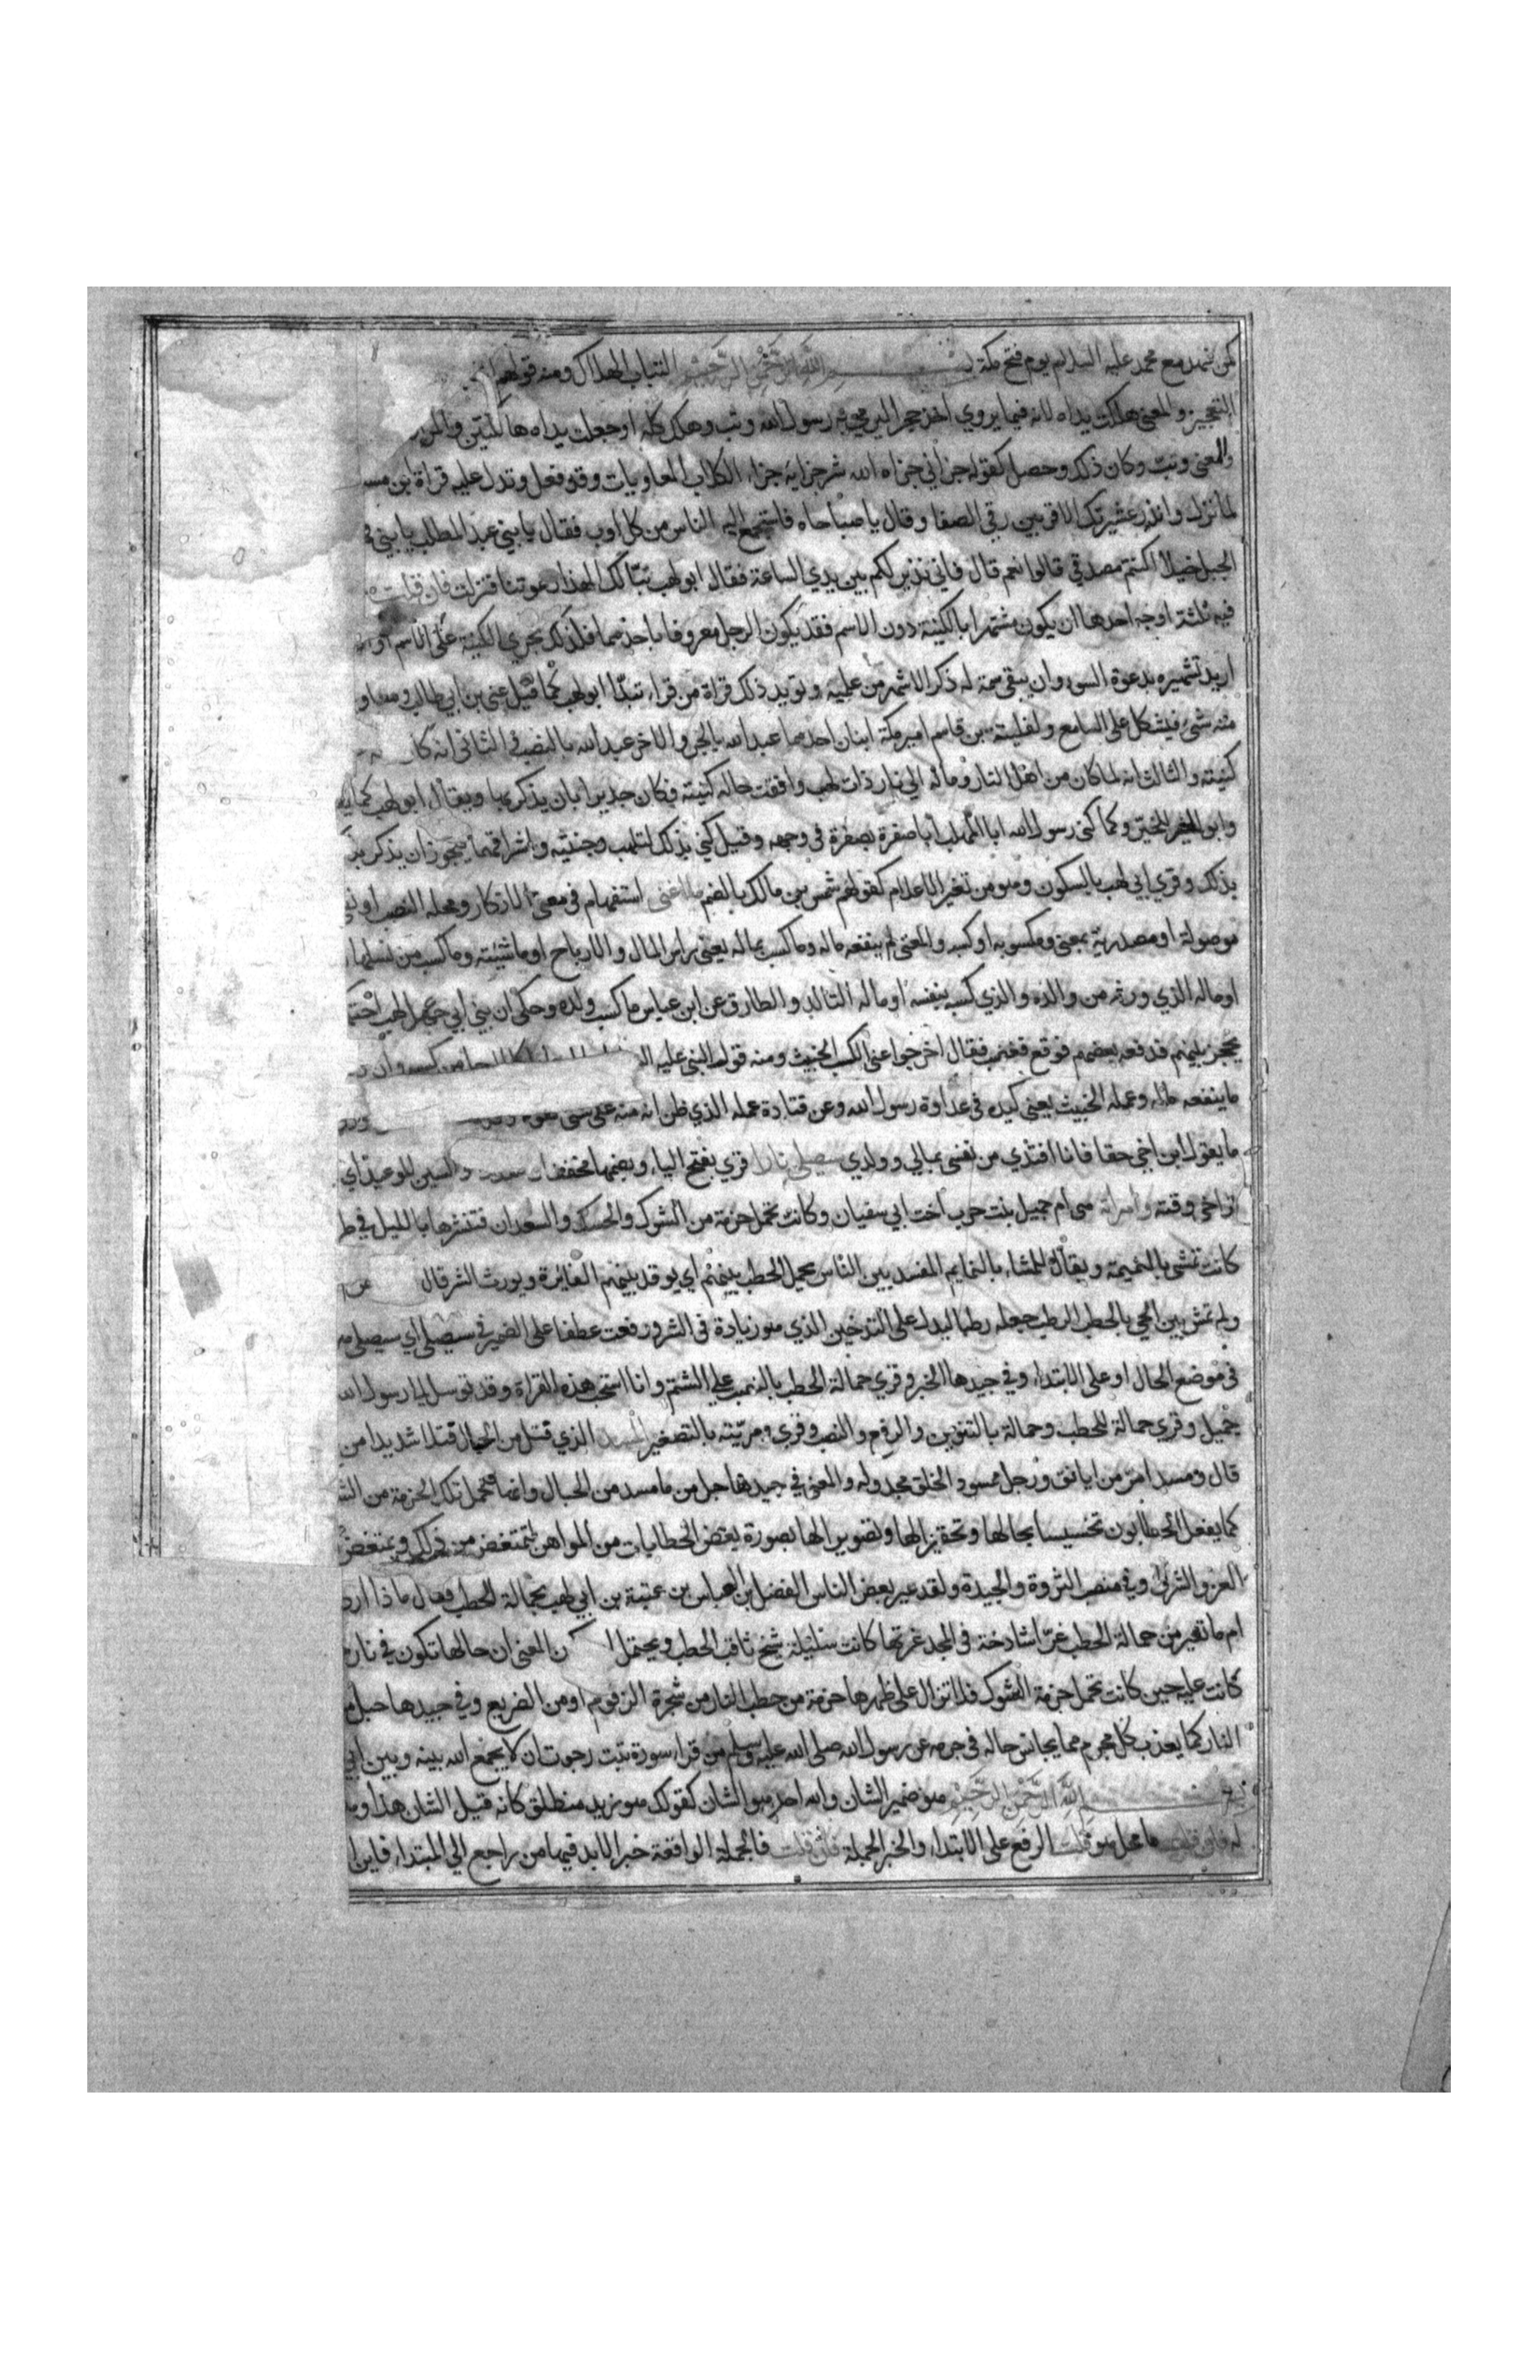 كمن شهد مع محمد عليه السلام يوم فتح مكة بسم الله الرحمن الرحيم التباب الهلاك ومنه قولهم
والمعنى هلكت يداه لانه فيما يروي اخذ حجرا ليرمي به رسول الله وتب وهلك كله او جعلت يداه هالكتين والمراد
والمعنى وتب وكان ذلك وحصل كقوله جزاني جزاه الله شر جزايه جزاء الكلاب المعاويات وقد فعل وتدل عليه قراة ابن مسـ
لما نزل وانذر عشيرتك الاقربين رقي الصفا وقال يا صباحاه فاستجمع اليه الناس من كل اوب فقال يا بني عبد المطلب يا بني
الجبل خيلا اكنتم مصدقي قالوا نعم قال فاني نذير لكم بين يدي الساعة فقال ابو لهب تبا لك الهذا دعوتنا فنزلت فان قلت
فيه ثلثة اوجه احدها ان يكون مشتهرا بالكنية دون الاسم فقد يكون الرجل معروفا باحدهما فلذلك تجري الكنية على الاسم او
اريد تشهيره بدعوة السوء وان يبقى سمة له ذكر الاشهر من علميه ويؤيد ذلك قراة من قراء تبدا ابو لهب كما قيل على بن ابي طالب ومعاو
منه شئ فيشكل على السامع ولفليتة بن قاسم امير مكة ابنان احدهما عبد الله بالجر والاخر عبد الله بالنصب الثانى انه كان
كنيته والثالث انه لما كان من اهل النار ومآله الي نار ذات لهب وافقت حاله كنيته فكان جديرا بان يذكر بها ويقال ابو لهب كما
وابو الخير للخير وكما كنى رسول الله ابا المهلب ابا صفرة بصفرة في وجهه وقيل كني بذلك لتلهب وجنتيه واشراقهما فيجوز ان يذكر
بذلك وقري ابي لهب بالسكون وهو من تغير الاعلام كقولهم شمس بن مالك بالضم ما اغنى استفهام في معنى الانكار ومحله النصب او
موصولة او مصدرية بمعنى ومكسوبه او كسبه والمعنى لم ينفعه ماله وما كسب بماله يعني راس المال والارباح او ماشيته وما كسب من نسلها
او ماله الذي ورثه من والده والذي كسبه بنفسه او ماله التالد والطارق عن ابن عباس ما كسب ولده وحكى ان بني ابي لهب
يحجز بينهم فدفعه بعضهم فوقع فغضب فقال اخرجوا عني الكسب الخبيث ومنه قوله النبي عليه
ما ينفعه ماله وعمله الخبيث يعني كيده في عداوة رسول الله وعن قتادة عمله الذي ظن انه منه على شى
ما يقول ابن اخي حقا فانا افتدي من نفسي بمالي وولدي سيصلى نارا قري بفتح الياء وبضمها مخففا والسين للوعيد اي
تراخى وقته وامراته هي ام جميل بنت حرب اخت ابي سفيان وكانت تحمل حزمة من الشوك والحسك والسعدان فتنثرها بالليل في
كانت تمشي بالنميمة ويقال للمشاء بالنمايم المفسد بين الناس يحمل الحطب بينهم اي يوقد بينهم النايرة ويورث الشر قال من
ولم تمش بين الحي بالحطب الرطب جعله رطبا ليدل على التدخين الذي هو زيادة في الشر ورفعت عطفا على الضمير في سيصلى اي سيصلى
في موضع الحال او على الابتداء وفي جيدها الخبر وقري حمالة الحطب بالنصب على الشتم وانا استحب هذه القراة وقد توسل الى رسول الله
جميل وقري حمالة للحطب وحمالة بالتنوين والرفع والنصب وقري ومريته بالتصغير المسد الذي فتل من الحبال فتلا شديدا من
قال ومسد امر من ايانق ورجل ممسود الخلق مجدوله والمعنى في جيدها حبل من ما مسد من الحبال وانها تحمل تلك الحزمة من
كما يفعل الحطابون تخسيسا بحالها وتحقيرا لها وتصويرا لها بصورة بعض الحطابات من المواهن لتمتعض من ذلك ويمتعض
العز والشرف وفي منصب الثروة والجدة ولقد عير بعض الناس الفضل بن العباس بن عتبة بن ابي لهب بحمالة الحطب فقال ماذا
ام ما تعير من حمالة الحطب غراء شادخة في المجد غرتها كانت سليلة شيخ ثاقب الحطب ويحتمل ان المعنى ان حالها تكون في نار
كانت عليه حين كانت تحمل حزمة الشوك فلا تزال على ظهرها حزمة من حطب النار من شجرة الزقوم او من الضريع وفي جيدها حبل
النار كما يعذب كل مجرم مما يجانس حاله في جرمه عن رسول الله صلى الله عليه وسلم من قراء سورة تبت رجوت ان لا يجمع الله بينه وبين ابي
بسم الله الرحمن الرحيم هو ضمير الشان والله احد هو الشان كقولك هو زيد منطلق كانه قيل الشان هذا
له فان قلت ما محل هو قلت الرفع على الابتداء والخبر الجملة فان قلت فالجملة الواقعة خبرا لابد فيها من راجع الى المبتداء فاين